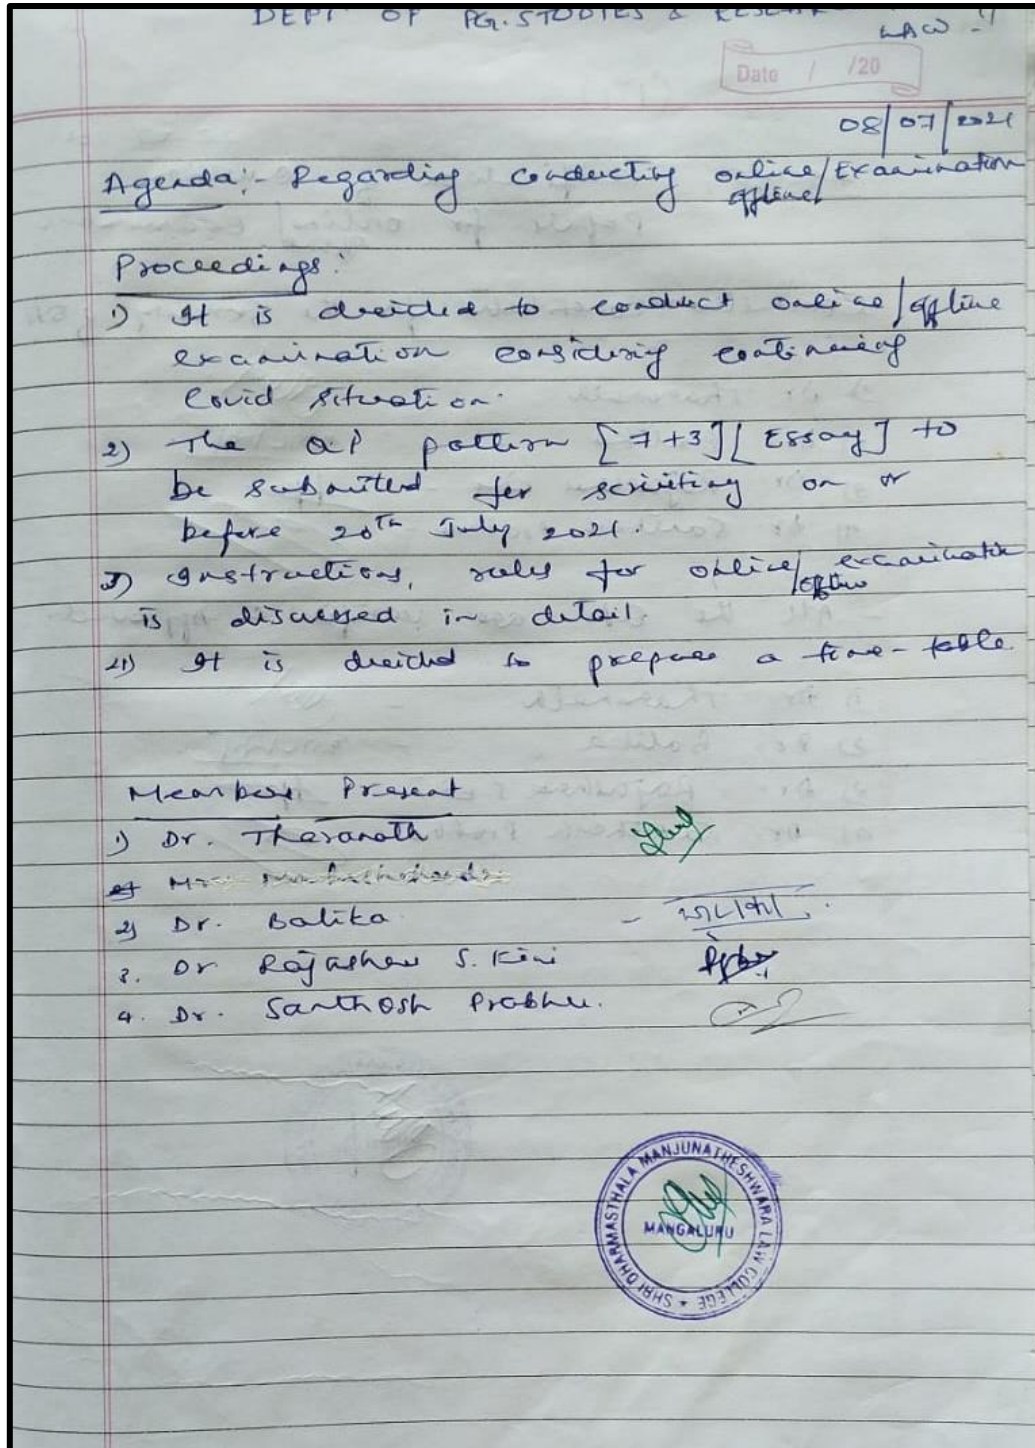 DEPT OF PG. STUDIES & RESEARCH
LAW
Date / /20
08/07/2021
Agenda:- Regarding conducting online/Examination
offline
Proceedings:
1) It is decided to conduct online/offline
examination considering continuing
Covid situation.
2) The QP pattern [7+3] [Essay] to
be submitted for scrutiny on or
before 20th July 2021.
3) Instructions, rules for online/ examination
offline
is discussed in detail
4) It is decided to prepare a time-table
Members Present
1) Dr. Tharanath
2) Dr. Balika
3. Dr Rajashree S. Kini
4. Dr. Santhosh Prabhu.
SHRI DHARMASTHALA MANJUNATHESHWARA LAW COLLEGE
MANGALURU